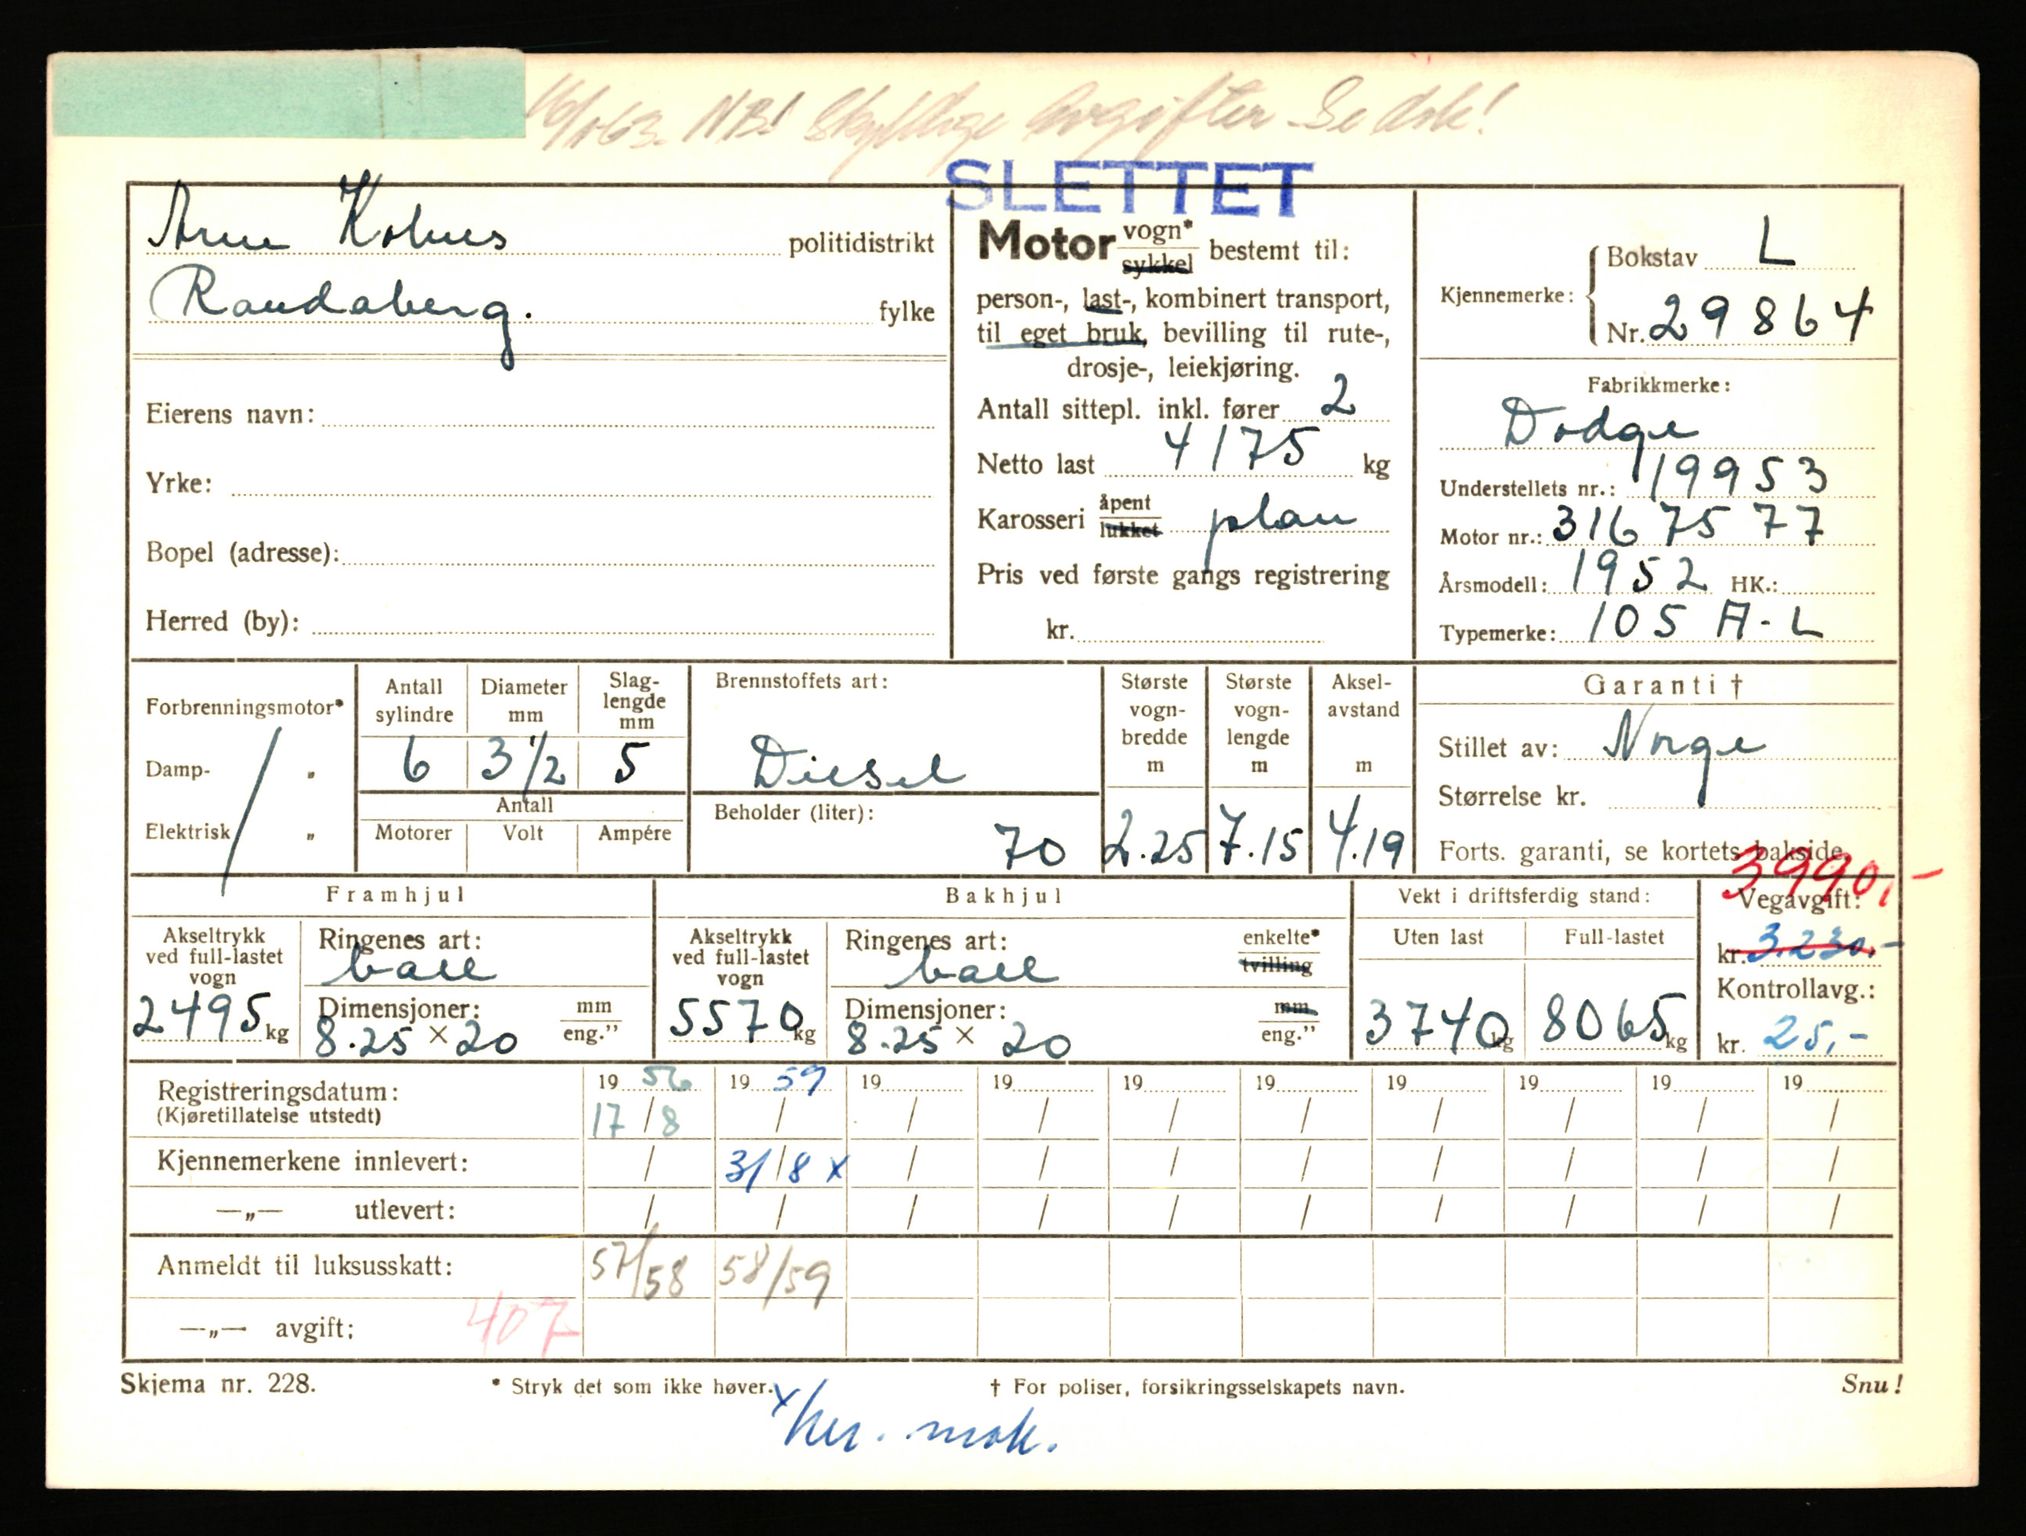 16/1-63. NB! Skyldige avgifter Se dsk!
SLETTET
Arne Kolnes politidistrikt
Randaberg. fylke
Eierens navn:
Yrke:
Bopel (adresse):
Herred (by):
Motor vogn* sykkel bestemt til:
person-, last-, kombinert transport,
til eget bruk, bevilling til rute-,
drosje-, leiekjøring.
Antall sittepl. inkl. fører 2
Netto last 4175 kg
Karosseri åpent lukket plan
Pris ved første gangs registrering
kr.
Kjennemerke: Bokstav L
Nr. 29864
Fabrikkmerke:
Dodge
Understellets nr.: 119953
Motor nr.: 3167577
Årsmodell: 1952 HK.:
Typemerke: 105 A-L
Forbrenningsmotor*
Damp- "
Elektrisk "
Antall sylindre 6
Diameter mm 3 1/2
Slag-lengde mm 5
Antall
Motorer Volt Ampére
Brennstoffets art:
Diesel
Beholder (liter):
70
Største vogn-bredde m 2.25
Største vogn-lengde m 7.15
Aksel-avstand m 4.19
Garanti †
Stillet av: Norge
Størrelse kr.
Forts. garanti, se kortets bakside
Framhjul
Akseltrykk ved full-lastet vogn
2495 kg
Ringenes art:
ball
Dimensjoner: mm eng."
8.25 × 20
Bakhjul
Akseltrykk ved full-lastet vogn
5570 kg
Ringenes art: enkelte* tvilling
ball
Dimensjoner: mm eng."
8.25 × 20
Vekt i driftsferdig stand:
Uten last Full-lastet
3740 kg 8065 kg
3990,-
Vegavgift:
kr. 3.230,-
Kontrollavg.:
kr. 25,-
Registreringsdatum: 19 56 19 59 19 19 19 19 19 19 19 19
(Kjøretillatelse utstedt) 17/8 / / / / / / / / /
Kjennemerkene innlevert: / 31/8 x / / / / / / / /
—„— utlevert: / / / / / / / / / /
Anmeldt til luksusskatt: 57/58 58/59
—„— avgift: 407
Skjema nr. 228. * Stryk det som ikke høver. † For poliser, forsikringsselskapets navn. Snu!